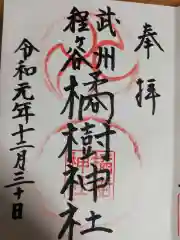 奉拝
武州
程ヶ谷
橘樹神社
令和元年十二月三十日